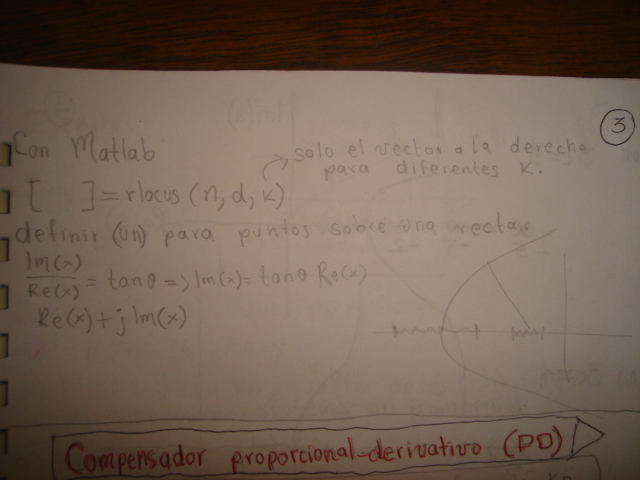 3
Con Matlab
solo el vector a la derecha
para diferentes K.
[ ] = rlocus (n, d, k)
definir (un) para puntos sobre una recta.
Im(x)/Re(x) = tan θ => Im(x) = tan θ Re(x)
Re(x) + j Im(x)
Compensador proporcional-derivativo (PD)